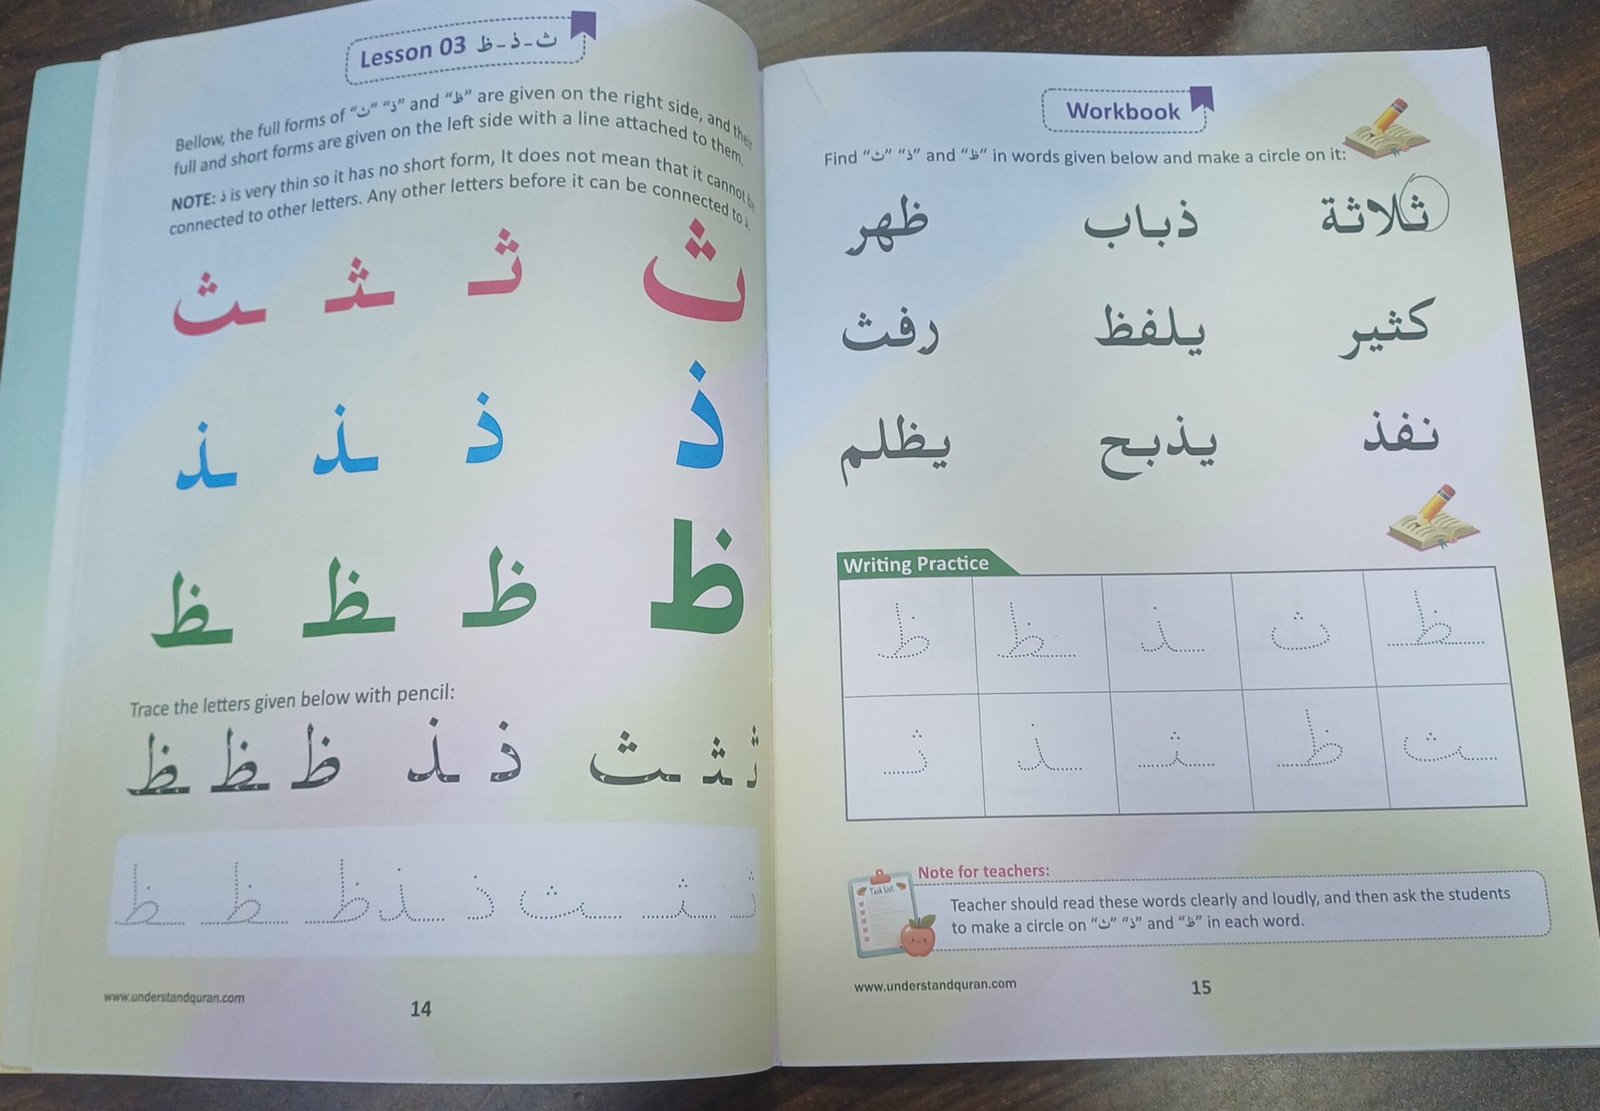 Lesson 03 ث - ذ - ظ
Bellow, the full forms of “ث” “ذ” and “ظ” are given on the right side, and their
full and short forms are given on the left side with a line attached to them.
NOTE: ذ is very thin so it has no short form, It does not mean that it cannot be
connected to other letters. Any other letters before it can be connected to ذ.
ث ثـ ـثـ ـث
ذ ذ ـذ ـذ
ظ ظـ ـظـ ـظ
Trace the letters given below with pencil:
ثـ ـثـ ـث ذ ـذ ظ ـظـ ـظ
ثـ ـثـ ـث ذ ـذ ـظـ ـظـ ـظ
www.understandquran.com
14
Workbook
Find “ث” “ذ” and “ظ” in words given below and make a circle on it:
ثلاثة ذباب ظهر
كثير يلفظ رفث
نفذ يذبح يظلم
Writing Practice
ـظـ ث ـذ ـظـ ظ
ـث ـظـ ـثـ ـذ ثـ
Note for teachers:
Task List
Teacher should read these words clearly and loudly, and then ask the students
to make a circle on “ث” “ذ” and “ظ” in each word.
www.understandquran.com
15